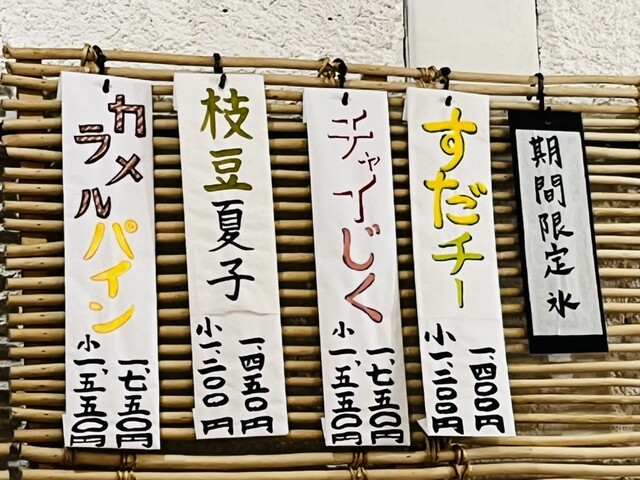 期間限定氷
すだチー
一、四〇〇円
小一、二〇〇円
チャイじく
一、七五〇円
小一、五五〇円
枝豆夏子
一、四五〇円
小一、二〇〇円
カメ
ラル
パイン
一、七五〇円
小一、五五〇円